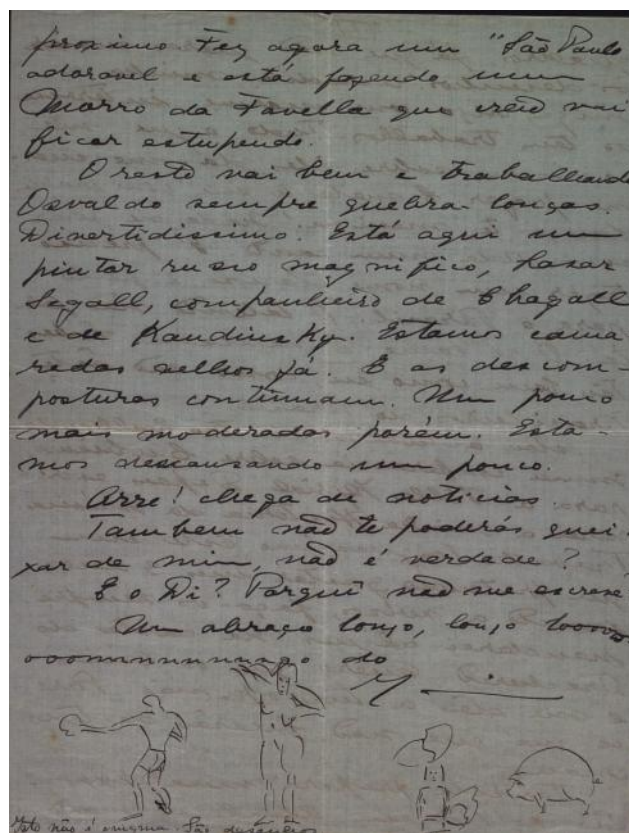 proximo. Fez agora um "São Paulo
adoravel e está fazendo um
Morro da Favella que creio vai
ficar estupendo.
O resto vai bem e trabalhando
Osvaldo sempre quebra-louças.
Divertidissimo. Está aqui um
pintor russo magnifico, Lasar
Segall, companheiro de Chagall
e de Kandinsky. Estamos cama
radas velhos já. E as descom-
posturas continuam. Um pouco
mais moderadas porém. Esta-
mos descansando um pouco.
Arre! chega de noticias.
Tambem não te poderás quei-
xar de mim, não é verdade?
E o Di? Porquê não me escreve
Um abraço longo, longo looon
ooonnnnnnnngo do
M
Isto não é enigma. São desenhos